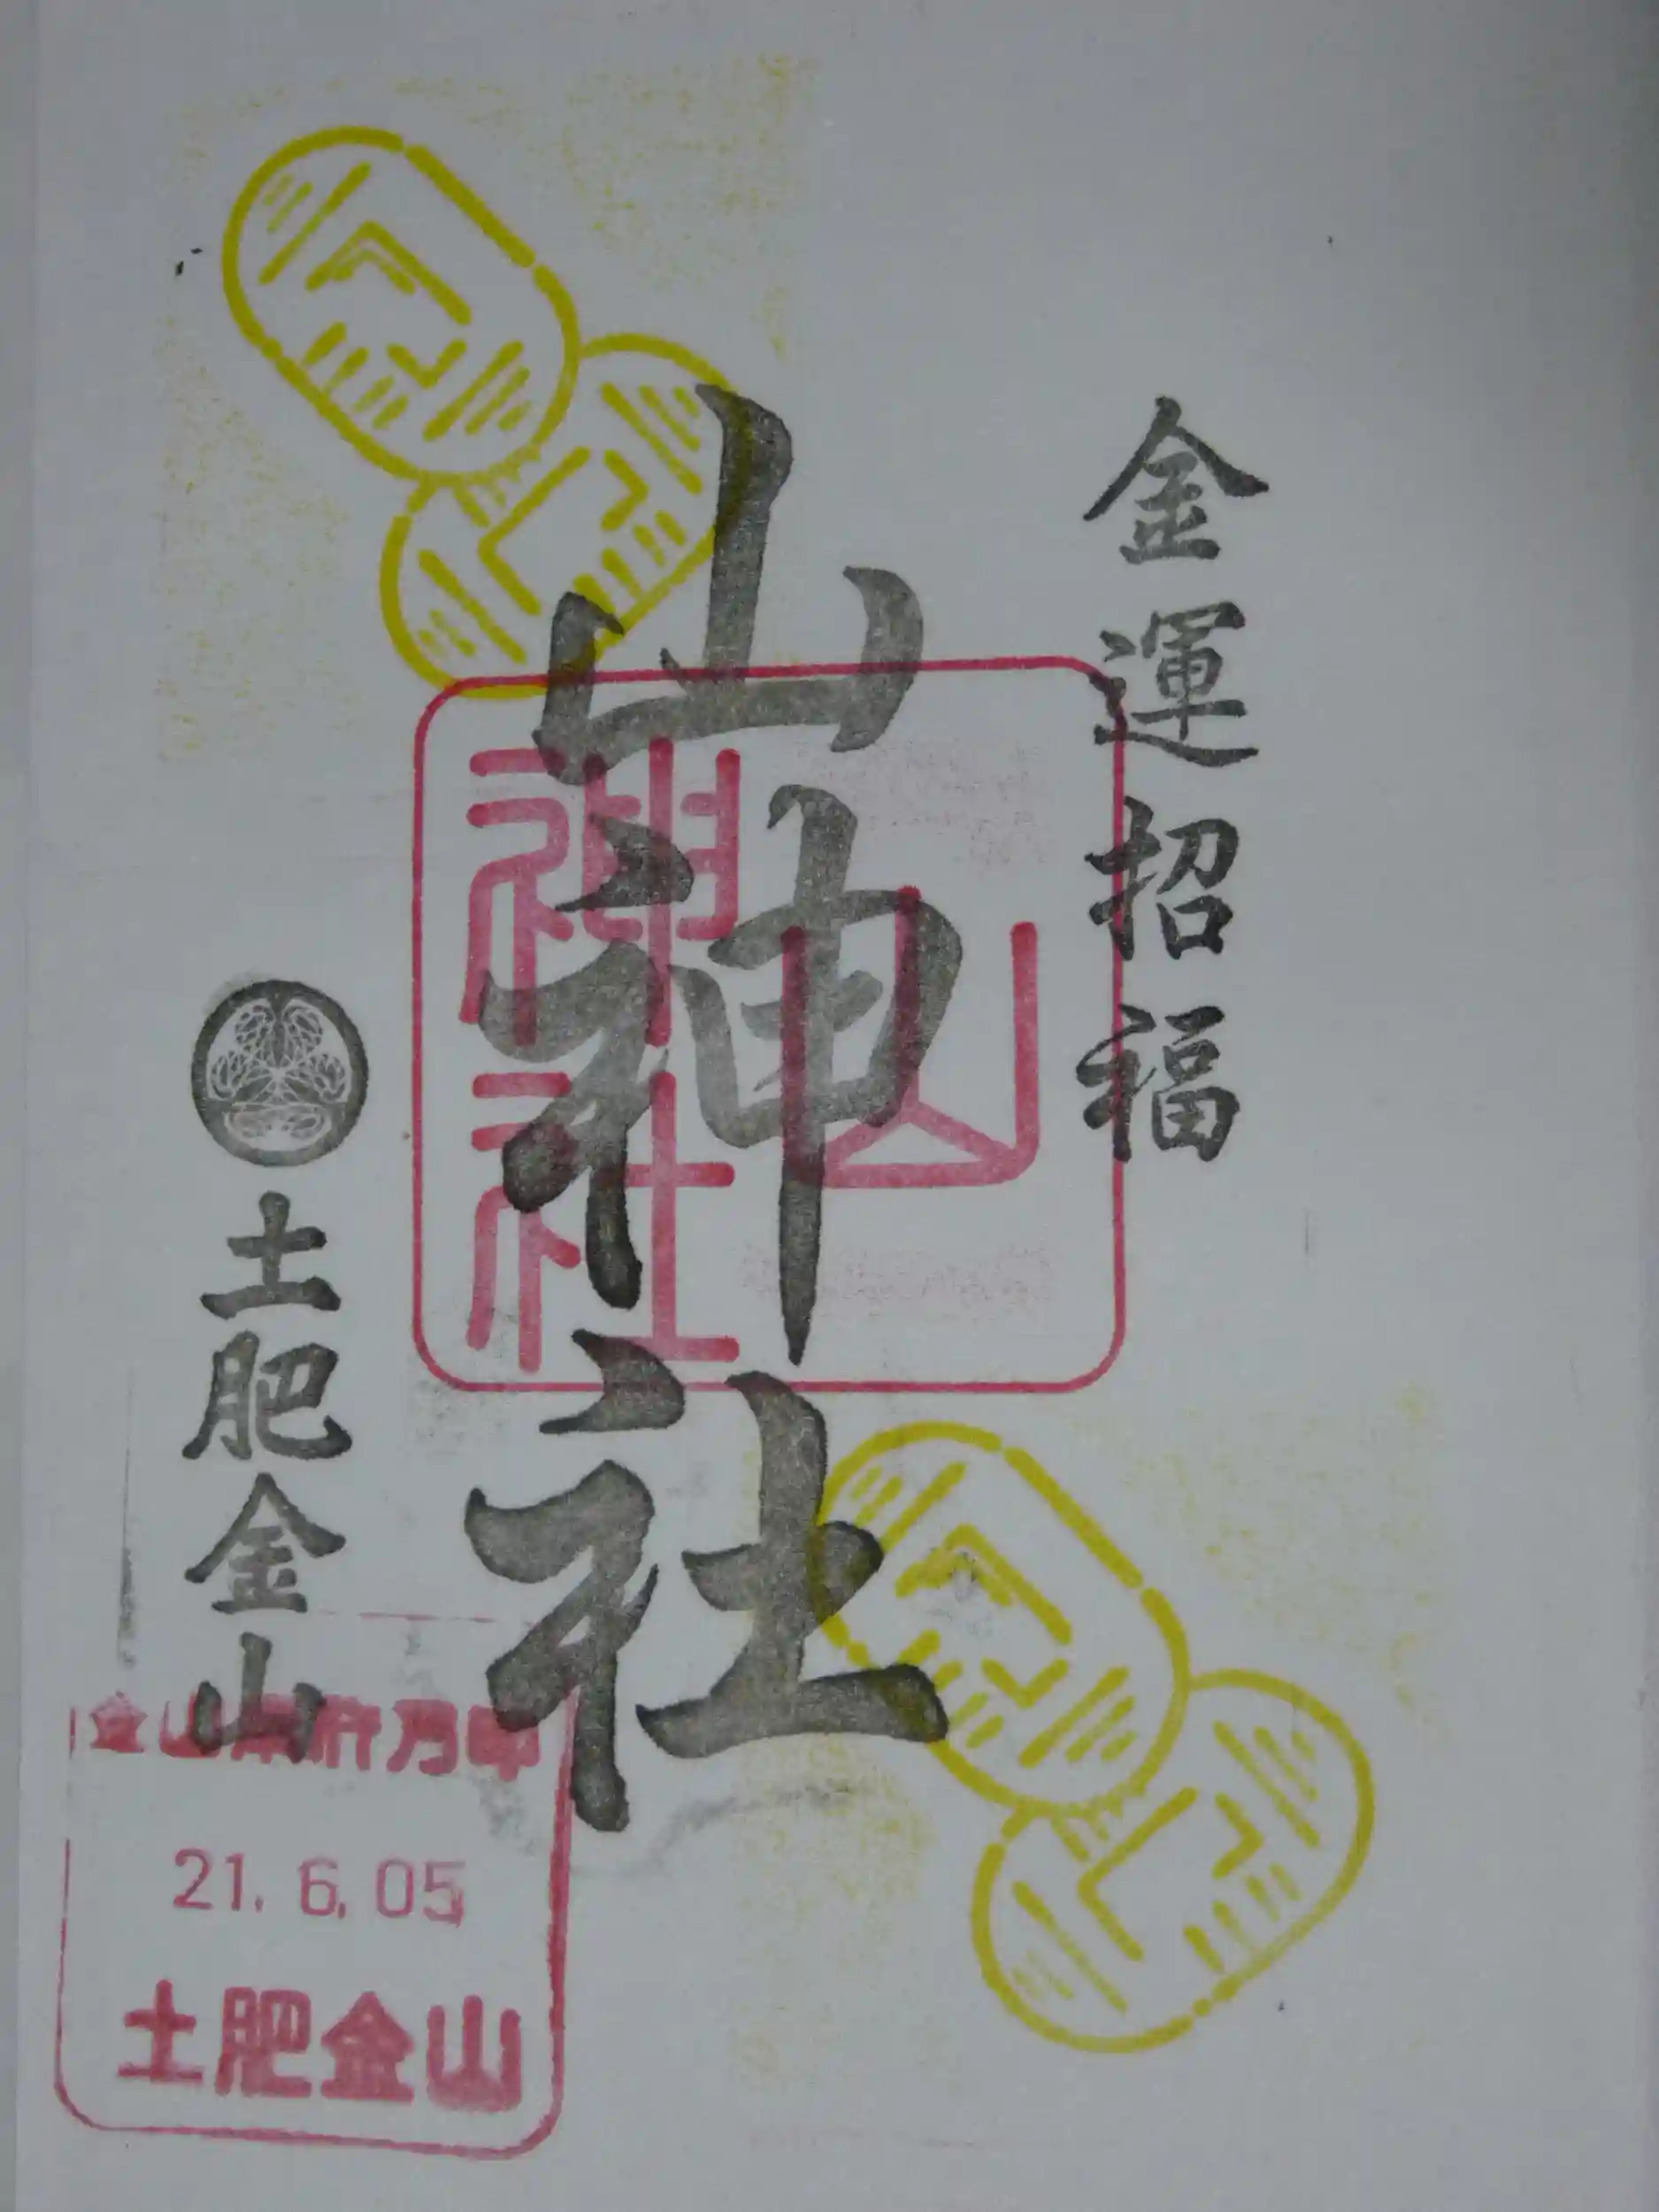 金運招福
山神社
山
神社
土肥金山
21. 6. 05
土肥金山